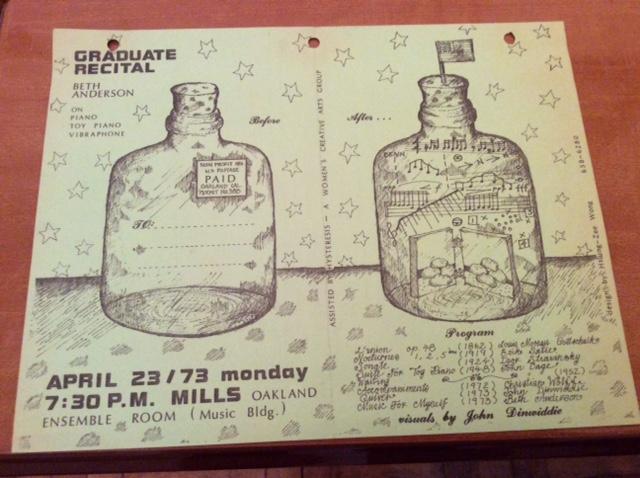 GRADUATE
RECITAL
BETH
ANDERSON
ON
PIANO
TOY PIANO
VIBRAPHONE
Before
NON PROFIT ORG
U.S. POSTAGE
PAID
OAKLAND CAL.
PERMIT NO.
TO:
APRIL 23/73 monday
7:30 P.M. MILLS OAKLAND
ENSEMBLE ROOM (Music Bldg.)
ASSISTED BY HYSTERESIS — A WOMEN'S CREATIVE ARTS GROUP
After...
638-6280
design by: Hsiung-Zee Wong
Program
L'union op. 48 (1862) Louis Moreau Gottschalk
Nocturnes 1, 2, 5 (1919) Erik Satie
(1924) Igor Stravinsky
Suite For Toy Piano (1948) John Cage
Waiting (1952)
Accompaniments (1972) Christian Wolff
(1973) John Dinwiddie
Music For Myself (1973) Beth Anderson
visuals by John Dinwiddie